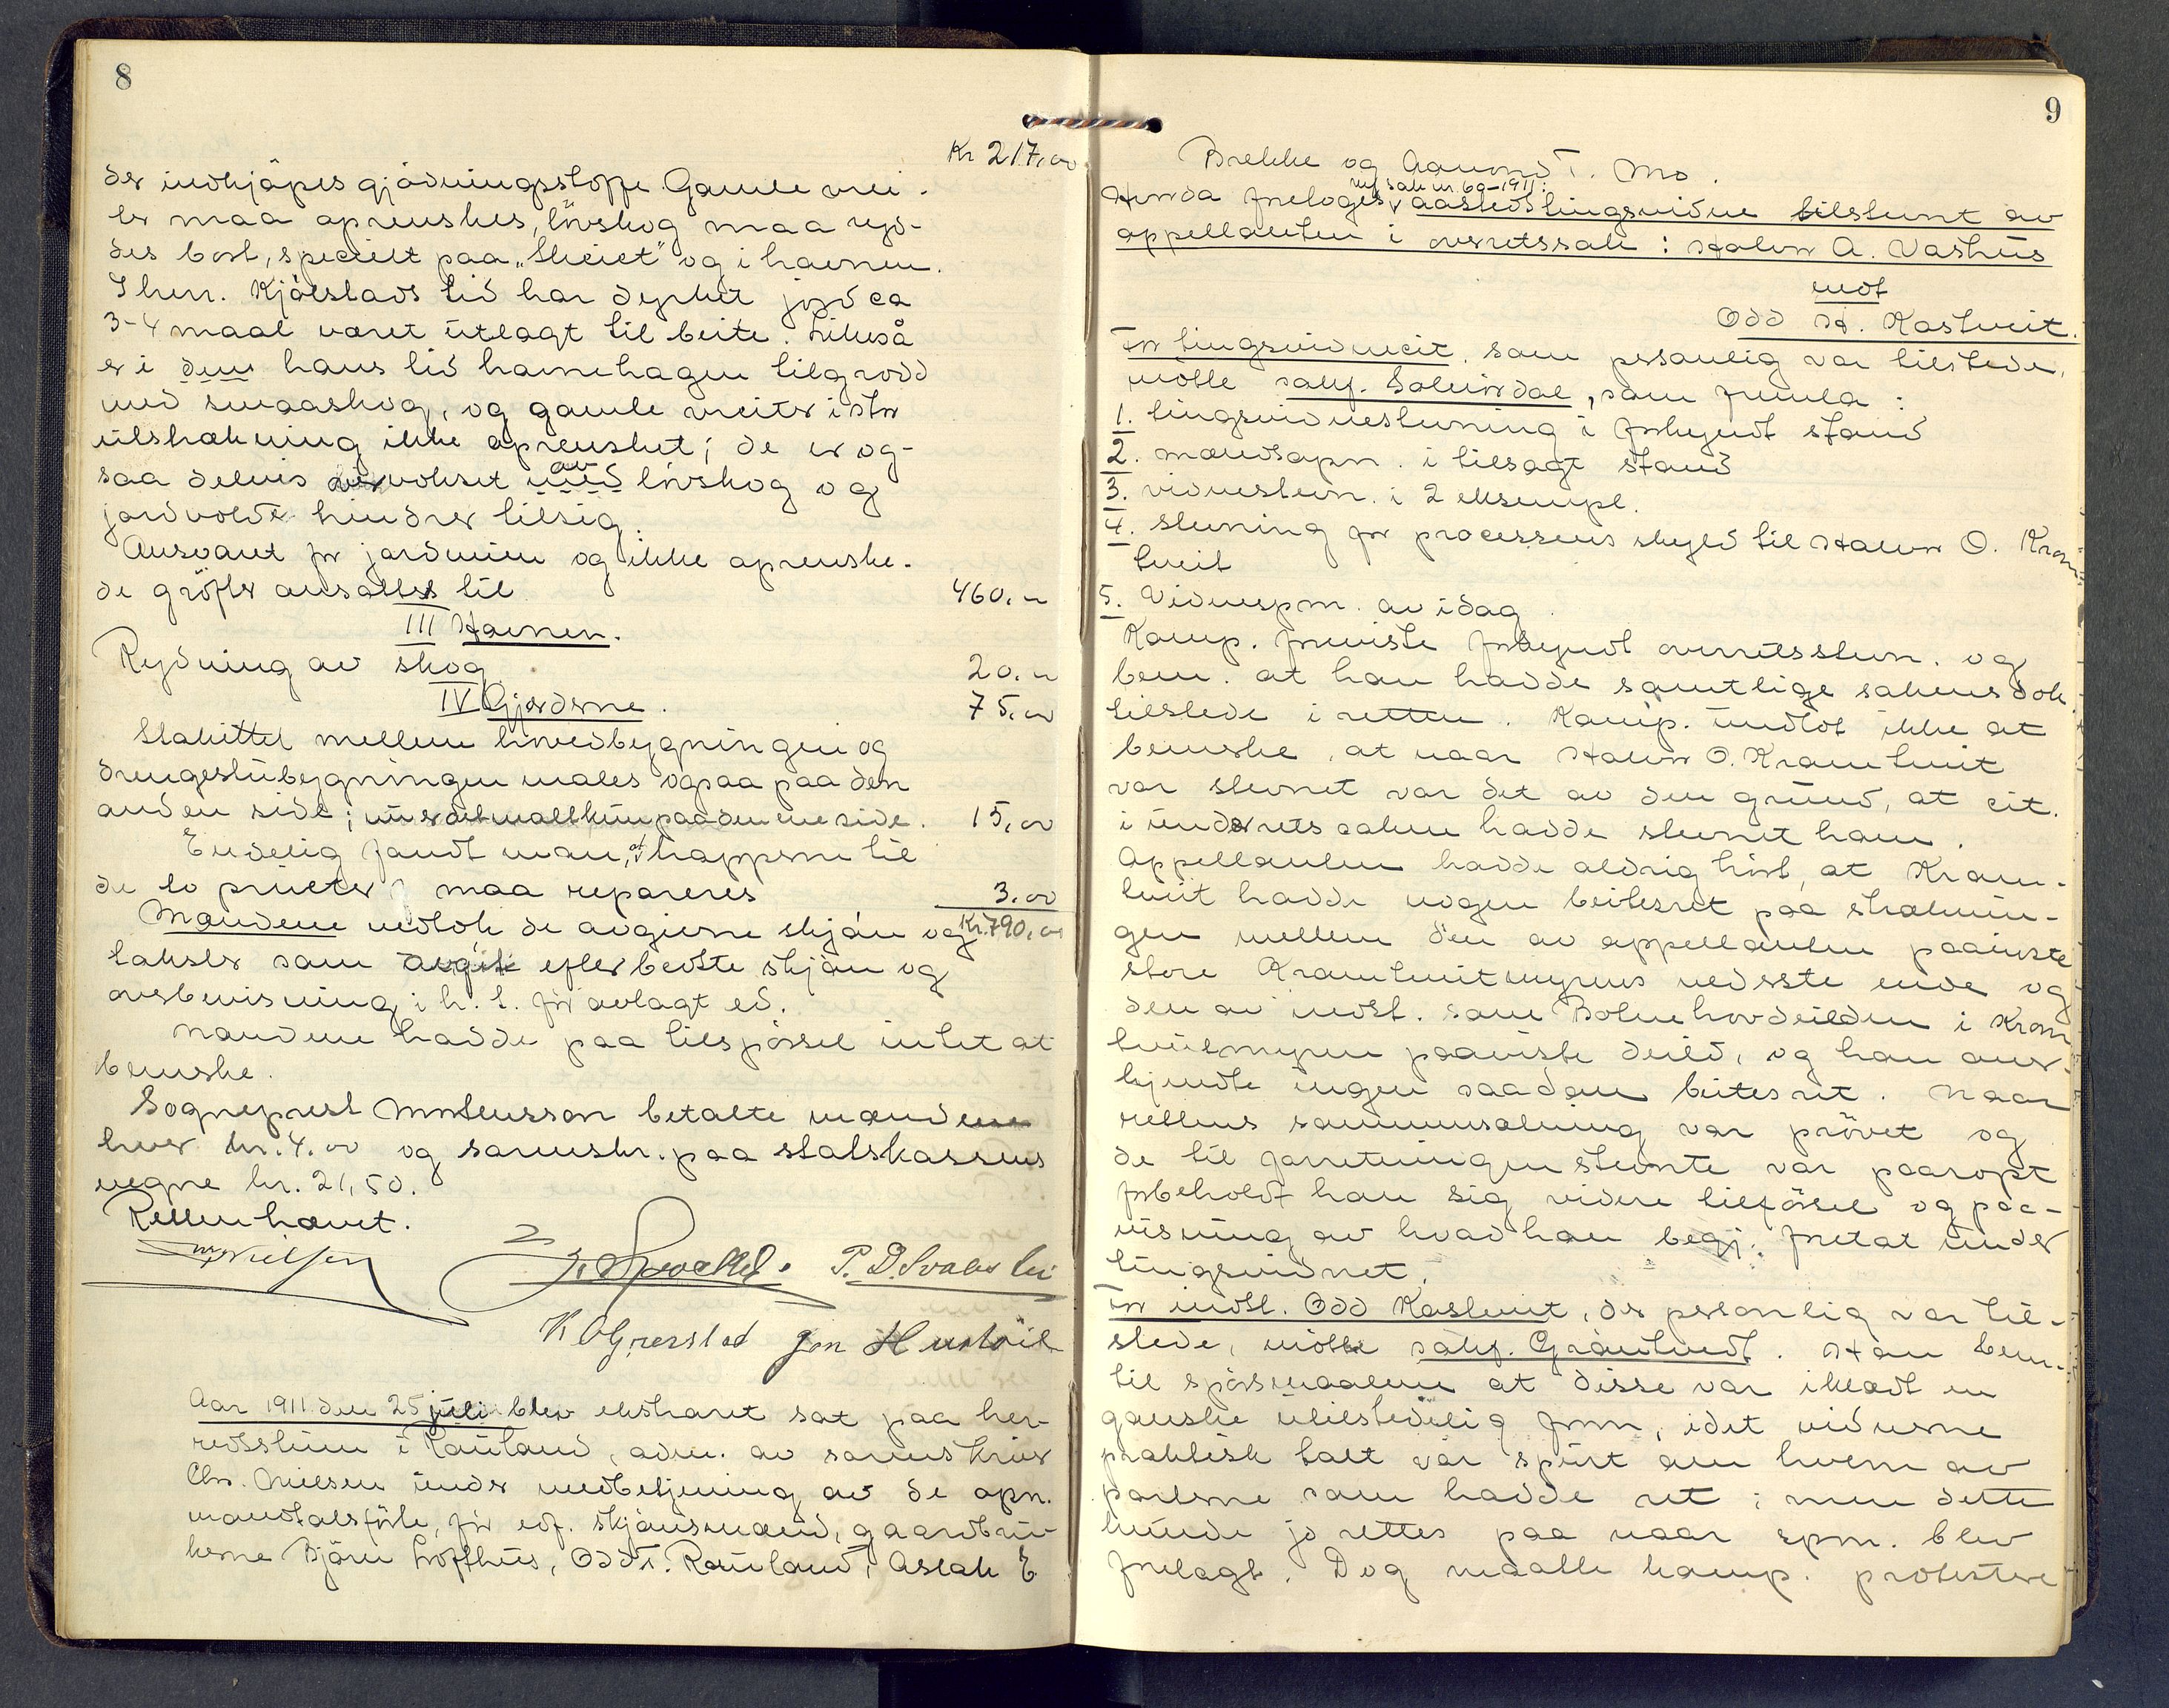 8
Kr 217,00
der indkjöpes gjödningsstoffe. Gamle vei-
ter maa oprenskes, lövskog maa ryd-
des bort, specielt paa „Skeiet" og i havnen.
I herr. Kjölstads tid har dyrket jord ca
3-4 maal været utlagt til beite. Likeså
er i den hans tid havnehagen tilgrodd
med smaaskog, og gamle veiter i stor
utstrækning ikke oprensket; de er og-
saa delvis vokset av med lövskog og
jordvolder hindrer tilsig.
Ansvaret for jordveien og ikke oprenske-
de gröfter ansattes til 460.00
III Havnen.
Rydning av skog. 20.00
IV Gjærderne. 75,00
Stakittet mellem hovedbygningen og
drengestubygningen males ogsaa paa den
anden side; nu er det malt kun paa den ene side. 15,00
Endelig fandt man, at trapperne til
de to maa repareres 3.00
Kr. 790,00
Mændene vedtok de avgivne skjön og
takster som avgit efter bedste skjön og
overbevisning i h. t. för avlagt ed.
Mændene hadde paa tilspörsel intet at
bemerke.
Sogneprest Mortensson betalte mændene
hver kr. 4.00 og sorenskr. paa statskassens
vegne kr. 21,50.
Retten hævet.
Chr Nielsen P. D. Svalastui
K O Gjærstad Jon H
Aar 1911 den 25 juli blev ekstraret sat paa her-
redsstuen i Rauland, adm. av sorenskriver
Chr. Nielsen under medbetjening av de opn.
mandtalsförte, för edf. skjönsmænd, gaardbru-
kerne Björn Lofthus, Odd T. Rauland, Aslak E
9
Brekke og Aamund T. Mo.
ref sak nr. 69-1911:
Herda foretoges aastedstingsvidne tilstevnt av
appellanten i overretssak: Halvor A. Vashus
mot
Odd H. Kostveit.
For tingsvidneeit. som personlig var tilstede,
mötte sakf. Solvirdal, som fremla:
1. tingsvidnestevning i forkyndt stand
2. mændsopn. i tilsagt stand
3. vidnestevn. i 2 eksempl.
4. stevning for processens skyld til Halvor O. Krom-
tveit
5. Vidnespm. av idag.
Komp. foreviste forkyndt overretsstevn. og
bem. at han hadde samtlige sakens dok.
tilstede i retten. Komp. undlot ikke at
bemerke, at naar Halvor O. Kromtveit
var stevnet var det av den grund, at cit.
i underretssaken hadde stevnet ham.
Appellanten hadde aldrig hört, at Krom-
tveit hadde nogen beitesret paa stræknin-
gen mellem den av appellanten paaviste
store Kromtveitmyrens nederste ende og
den av indst. som Bolnehovdeilden i Krom-
tveitmyren paaviste deild, og han aner-
kjendte ingen saadan beitesret. Naar
rettens sammensætning var prövet og
de til forretningen stevnte var paaropt
forbeholdt han sig videre tilförsel og paa-
visning av hvad han begj. foretat under
tingsvidnet.
For indst. Odd Kostveit, der personlig var til-
stede, mötte sakf. Gröntvedt. Han bem.
til spörsmaalene at disse var iklædt en
ganske utilstedelig form, idet vidnerne
praktisk talt var spurt om hvem av
parterne som hadde ret; men dette
kunde jo rettes paa naar spm. blev
forelagt. Dog maatte komp. protestere